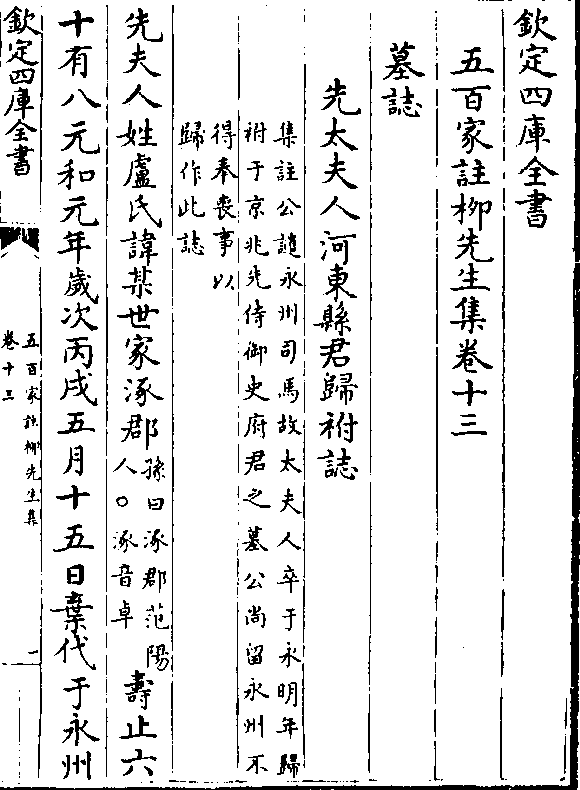 欽定四庫全書
五百家註柳先生集卷十三
墓誌
先太夫人河東縣君歸祔誌
集註公謫永州司馬故太夫人卒于永明年歸
祔于京兆先侍御史府君之墓公尚留永州不
得奉喪事以
歸作此誌
先夫人姓盧氏諱某世家涿郡孫曰涿郡范陽人○涿音卓壽止六
十有八元和元年歲次丙戌五月十五日棄代于永州
欽定四庫全書
五百家註柳先生集
卷十三
一